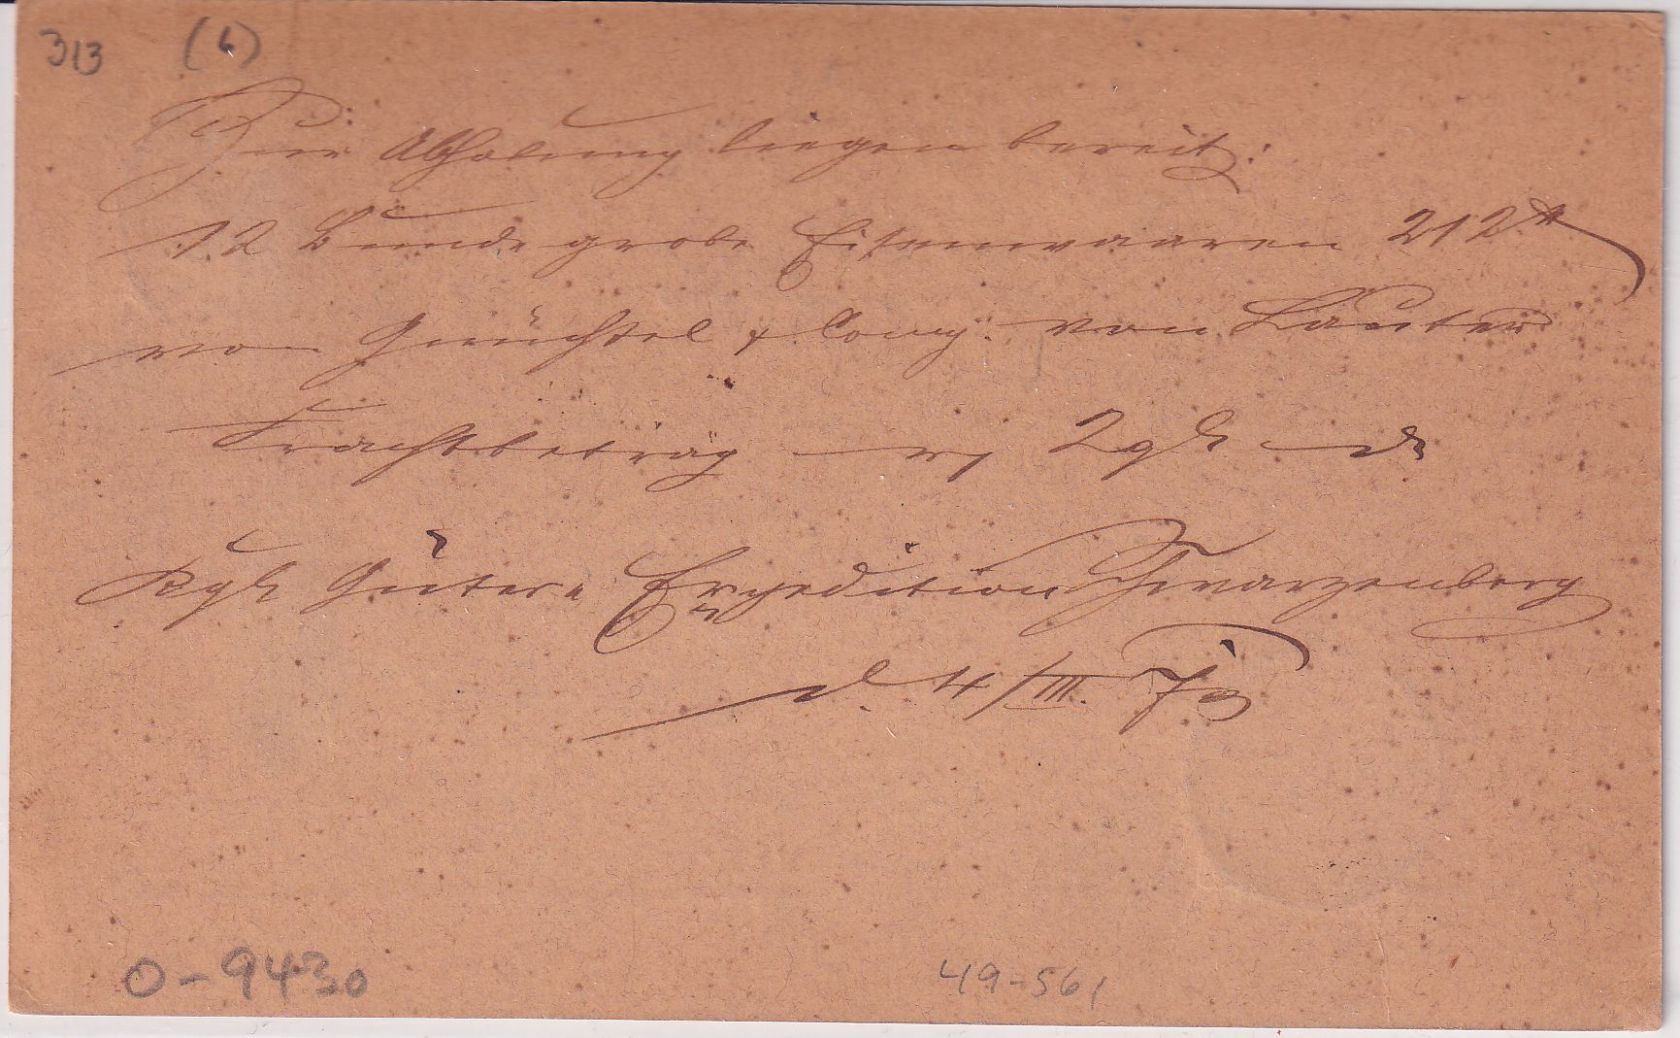 313 (6)
Zur Abholung liegen bereit:
12 Bunde grobe Eisenwaaren 212 ℔
von & Comp: von Lauter
Frachtbetrag
Kgl Güter Expedition Schwarzenberg
d. 4/III. 73
0-9430
49-561